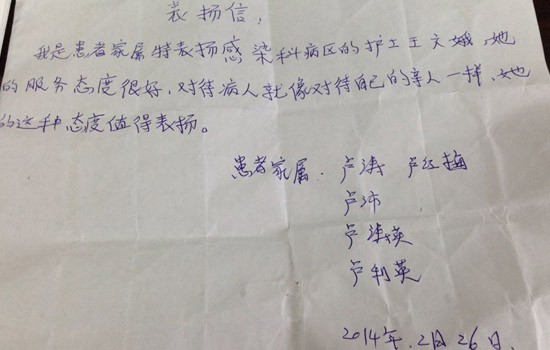 表扬信,
我是患者家属特表扬感染科病区的护士王文娥,她
的服务态度很好,对待病人就像对待自己的亲人一样、她
的这种态度值得表扬。
患者家属. 卢涛 卢红梅
卢沛
卢英
卢利英
2014年.2月26日.